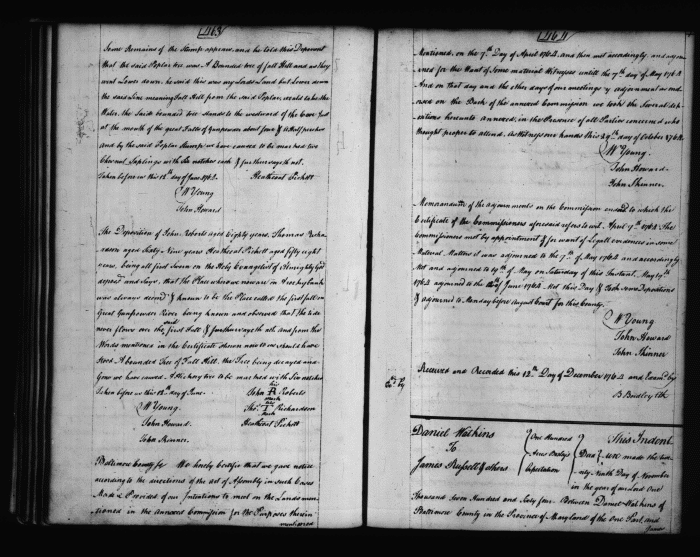 463
Some Remains of the Stump appears, and he told this Deponent
that the said Poplar tree was A Bounded tree of fall Hill and as they
went Lower down, he said this was my Lords Land but Lower down
the said Line meaning Fall Hill from the said Poplar, would take the
Water, the said bounded tree stands to the
at the mouth of the great Falls of Gunpowder about
and by the said Poplar Stump we have caused to be marked two
Chesnut Saplings with Six notches each & further says th not.
Taken before us this 12th day of June 1762. Heathcoat Pickett
W Young
John Howard
The Deposition of John Roberts aged Eighty years, Thomas Richa
rdson aged Sixty Nine years Heathcoat Pickett aged fifty eight
years, being all first Sworn on the Holy Evangelist of Almighty God
deposeth and Says, that the Place where we now are in
was always deemed & known to be the Place called the first fall on
Great Gunpowder River being known and observed that the tide
never flows over the said first fall & further says th not and from the
Words mentioned in the Certificate shewn now to us should have
stood A bounded Tree of Fall Hill, the Tree being decayed and
Gone we have caused A Hickory tree to be marked with Six notches
Taken before us this 12th day of June. John R Roberts
his
mark
W Young. Tho. T Richardson
his
mark
John Howard. Heathcoat Pickett
John Skinner.
Baltimore County Sc We hereby Certifie that we gave notice
according to the directions of the act of Assembly in such Cases
Made & Provided of our Intentions to meet on the Lands men
tioned in the Annexed Commission for the Purposes therein
mentioned
464
Mentioned, on the 7th Day of April 1762, and then met accordingly, and adjou
rned for the Want of Some material Witnesses untill the 7th day of May 1762
And on that day and the other days of our meetings by adjournment as end
orsed on the Back of the annexed Commission we took the Several dep
ositions hereunto Annexed, in the Presence of all Parties concerned who
thought proper to attend. As Witness our hands this 29th day of October 1762.
W Young.
John Howard
John Skinner.
Memorandum of the adjournments on the Commission endorsed to which the
Certificate of the Commissioners aforesaid refers to wit. April 7th 1762 The
Commissioners met by appointment & for want of Legall evidences in some
Material Matters it was adjourned to the 7th of May 1762 and accordingly
Met and adjourned to 15th of May on Saturday of this Instant. May 15th
1762 adjourned to the 12th of June 1762. Met this Day & took Some Depositions
& adjourned to Monday before August Court for this County.
W Young
John Howard
John Skinner
Received and Recorded this 12th Day of December 1764 and Exam'd by
B. Bordley Clk
Daniel Watkins
To
James Russell & others
One Hundred
Acres Baley's
Deed
This Indent
ure made the twe
nty Ninth Day of November
in the year of our Lord One
Thousand Seven Hundred and Sixty four Between Daniel Watkins of
Baltimore County in the Province of Maryland of the One Part, and
James